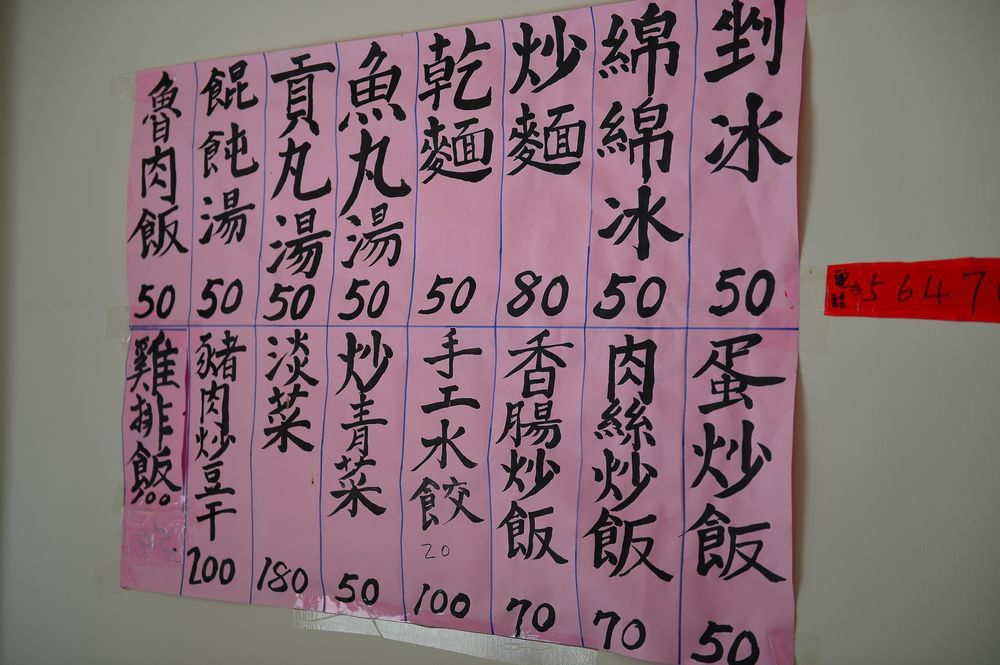 剉冰 50
綿綿冰 50
炒麵 80
乾麵 50
魚丸湯 50
貢丸湯 50
餛飩湯 50
魯肉飯 50
蛋炒飯 50
肉絲炒飯 70
香腸炒飯 70
手工水餃 20 100
炒青菜 50
淡菜 180
豬肉炒豆干 200
雞排飯
電話:5647